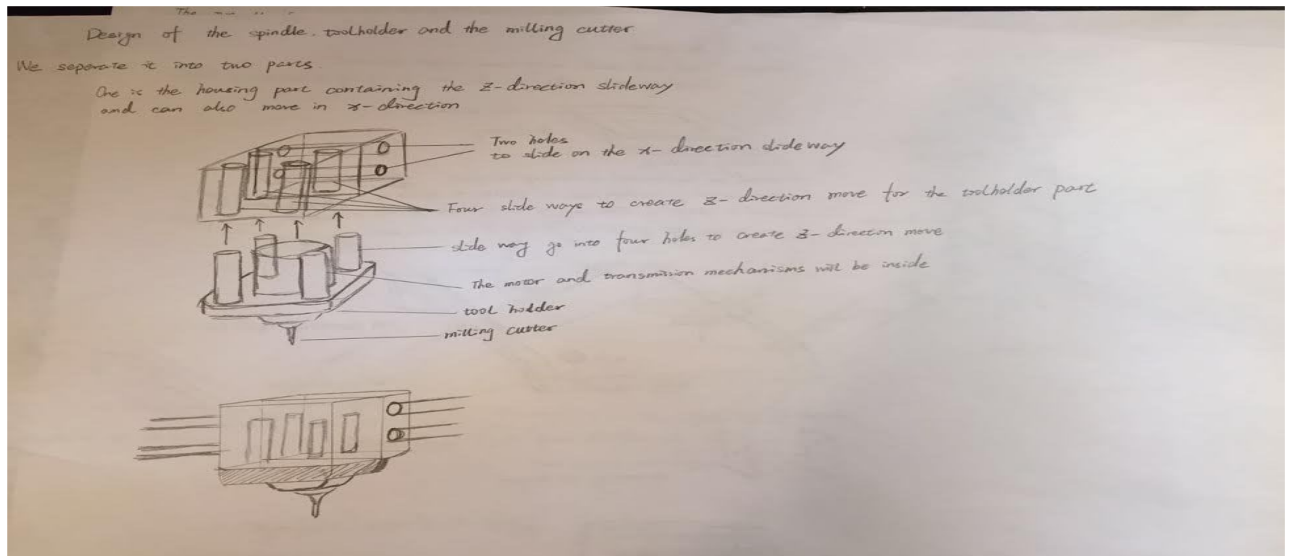 The
Design of the spindle. toolholder and the milling cutter
We separate it into two parts.
One is the housing part containing the z-direction slideway
and can also move in x-direction
Two holes
to slide on the x-direction slideway
Four slide ways to create z-direction move for the toolholder part
slide way go into four holes to create z-direction move
The motor and transmission mechanisms will be inside
tool holder
milling cutter